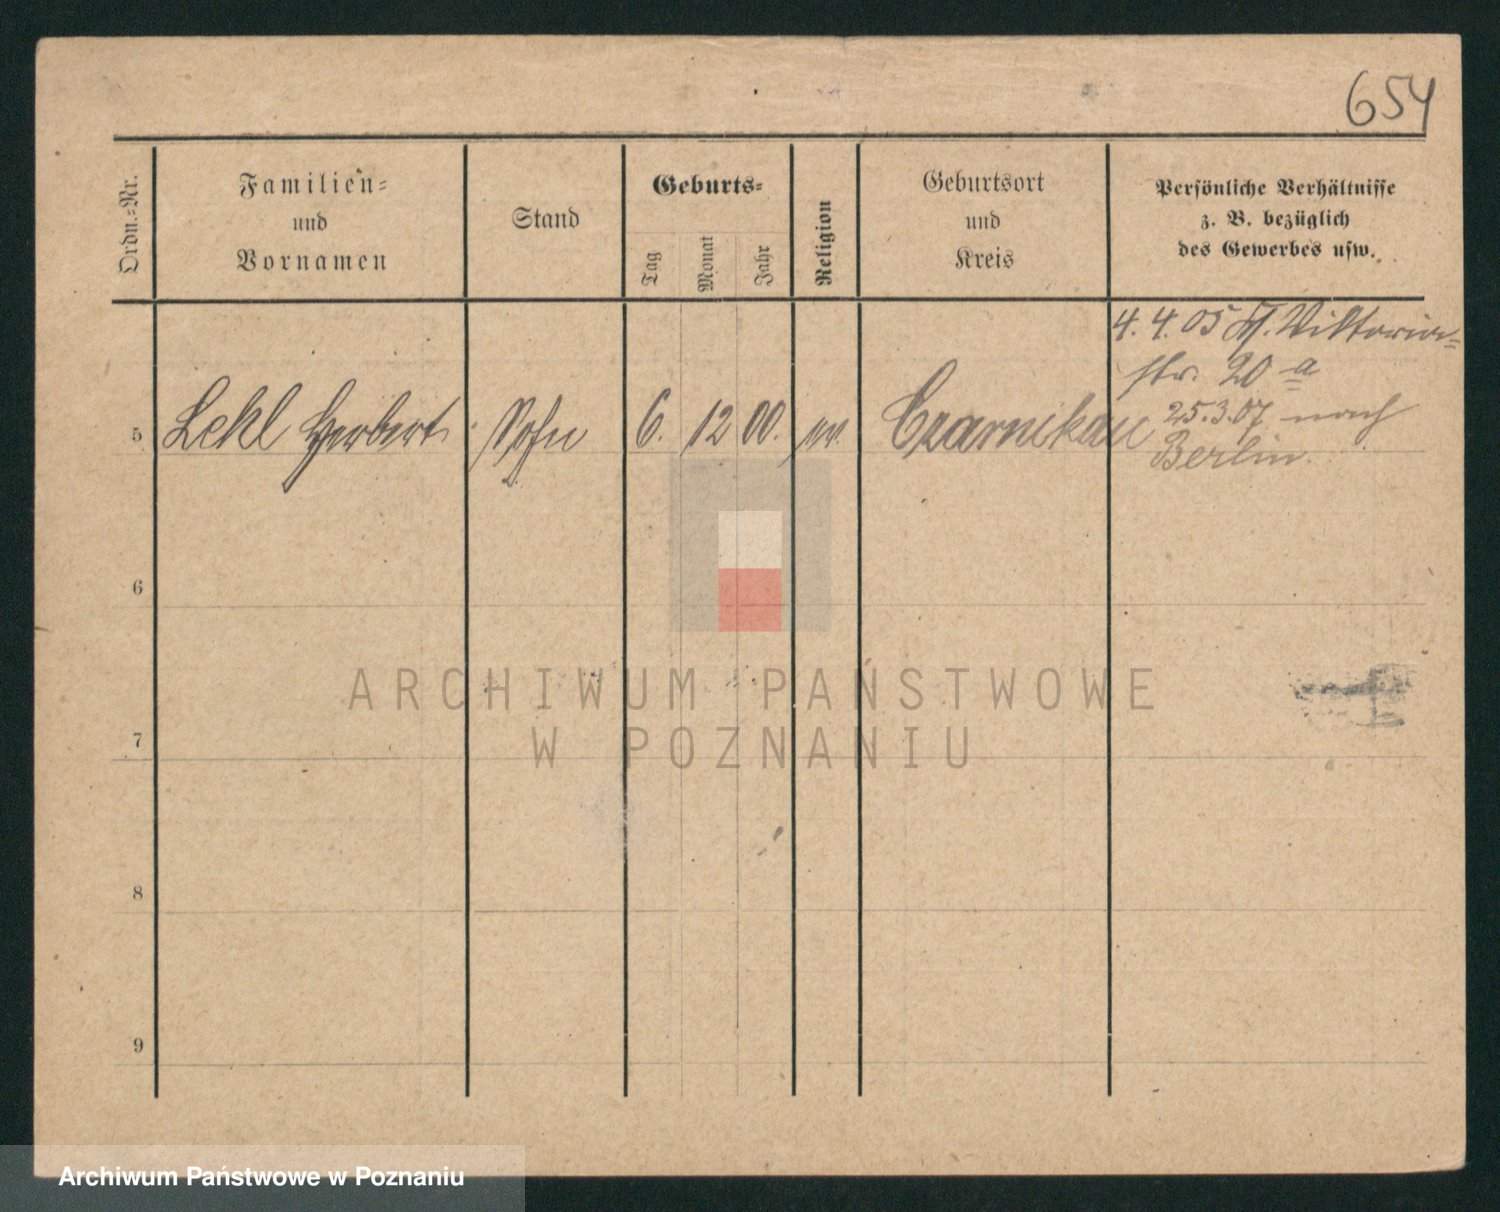 654
Ordn.=Nr.
Familien=
und
Vornamen
Stand
Geburts=
Tag
Monat
Jahr
Religion
Geburtsort
und
Kreis
Persönliche Verhältnisse
z. B. bezüglich
des Gewerbes usw.
4. 4. 05 Viktoria=
str. 20 a
5 Lekl Herbert Sohn 6. 12 00. ev. Czarnikau
25.3.07 nach
Berlin.
6
7
8
9
ARCHIWUM PAŃSTWOWE
W POZNANIU
Archiwum Państwowe w Poznaniu